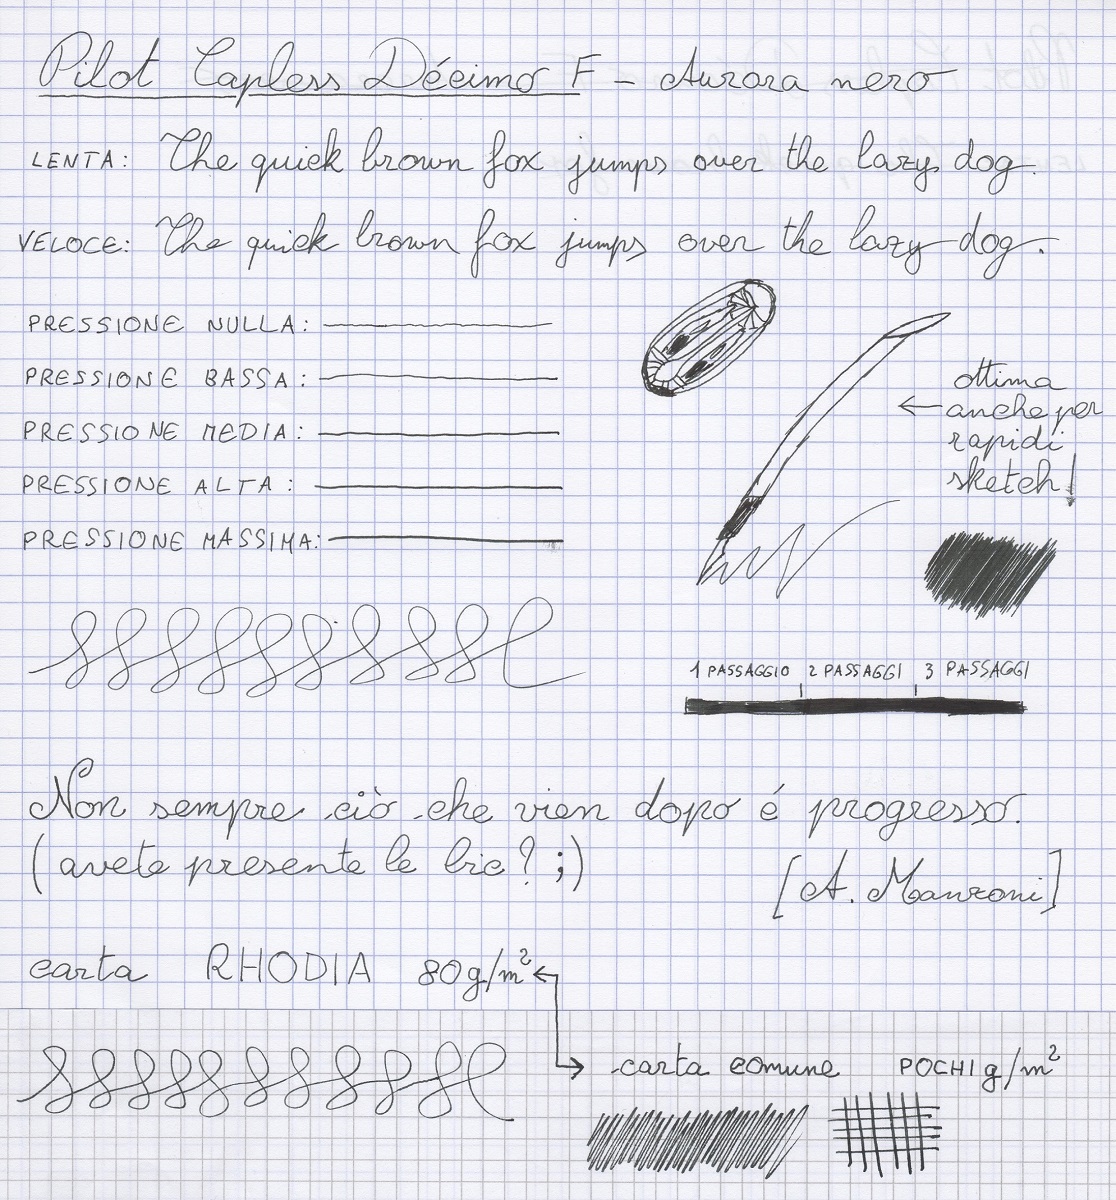 Pilot Capless Décimo F - Aurora nero
LENTA: The quick brown fox jumps over the lazy dog.
VELOCE: The quick brown fox jumps over the lazy dog.
PRESSIONE NULLA:
PRESSIONE BASSA:
PRESSIONE MEDIA:
PRESSIONE ALTA:
PRESSIONE MASSIMA:
ottima
← anche per
rapidi
sketch!
1 PASSAGGIO 2 PASSAGGI 3 PASSAGGI
Non sempre ciò che vien dopo é progresso.
(avete presente le bic? ;)
[A. Manzoni]
carta RHODIA 80g/m²
carta comune POCHI g/m²